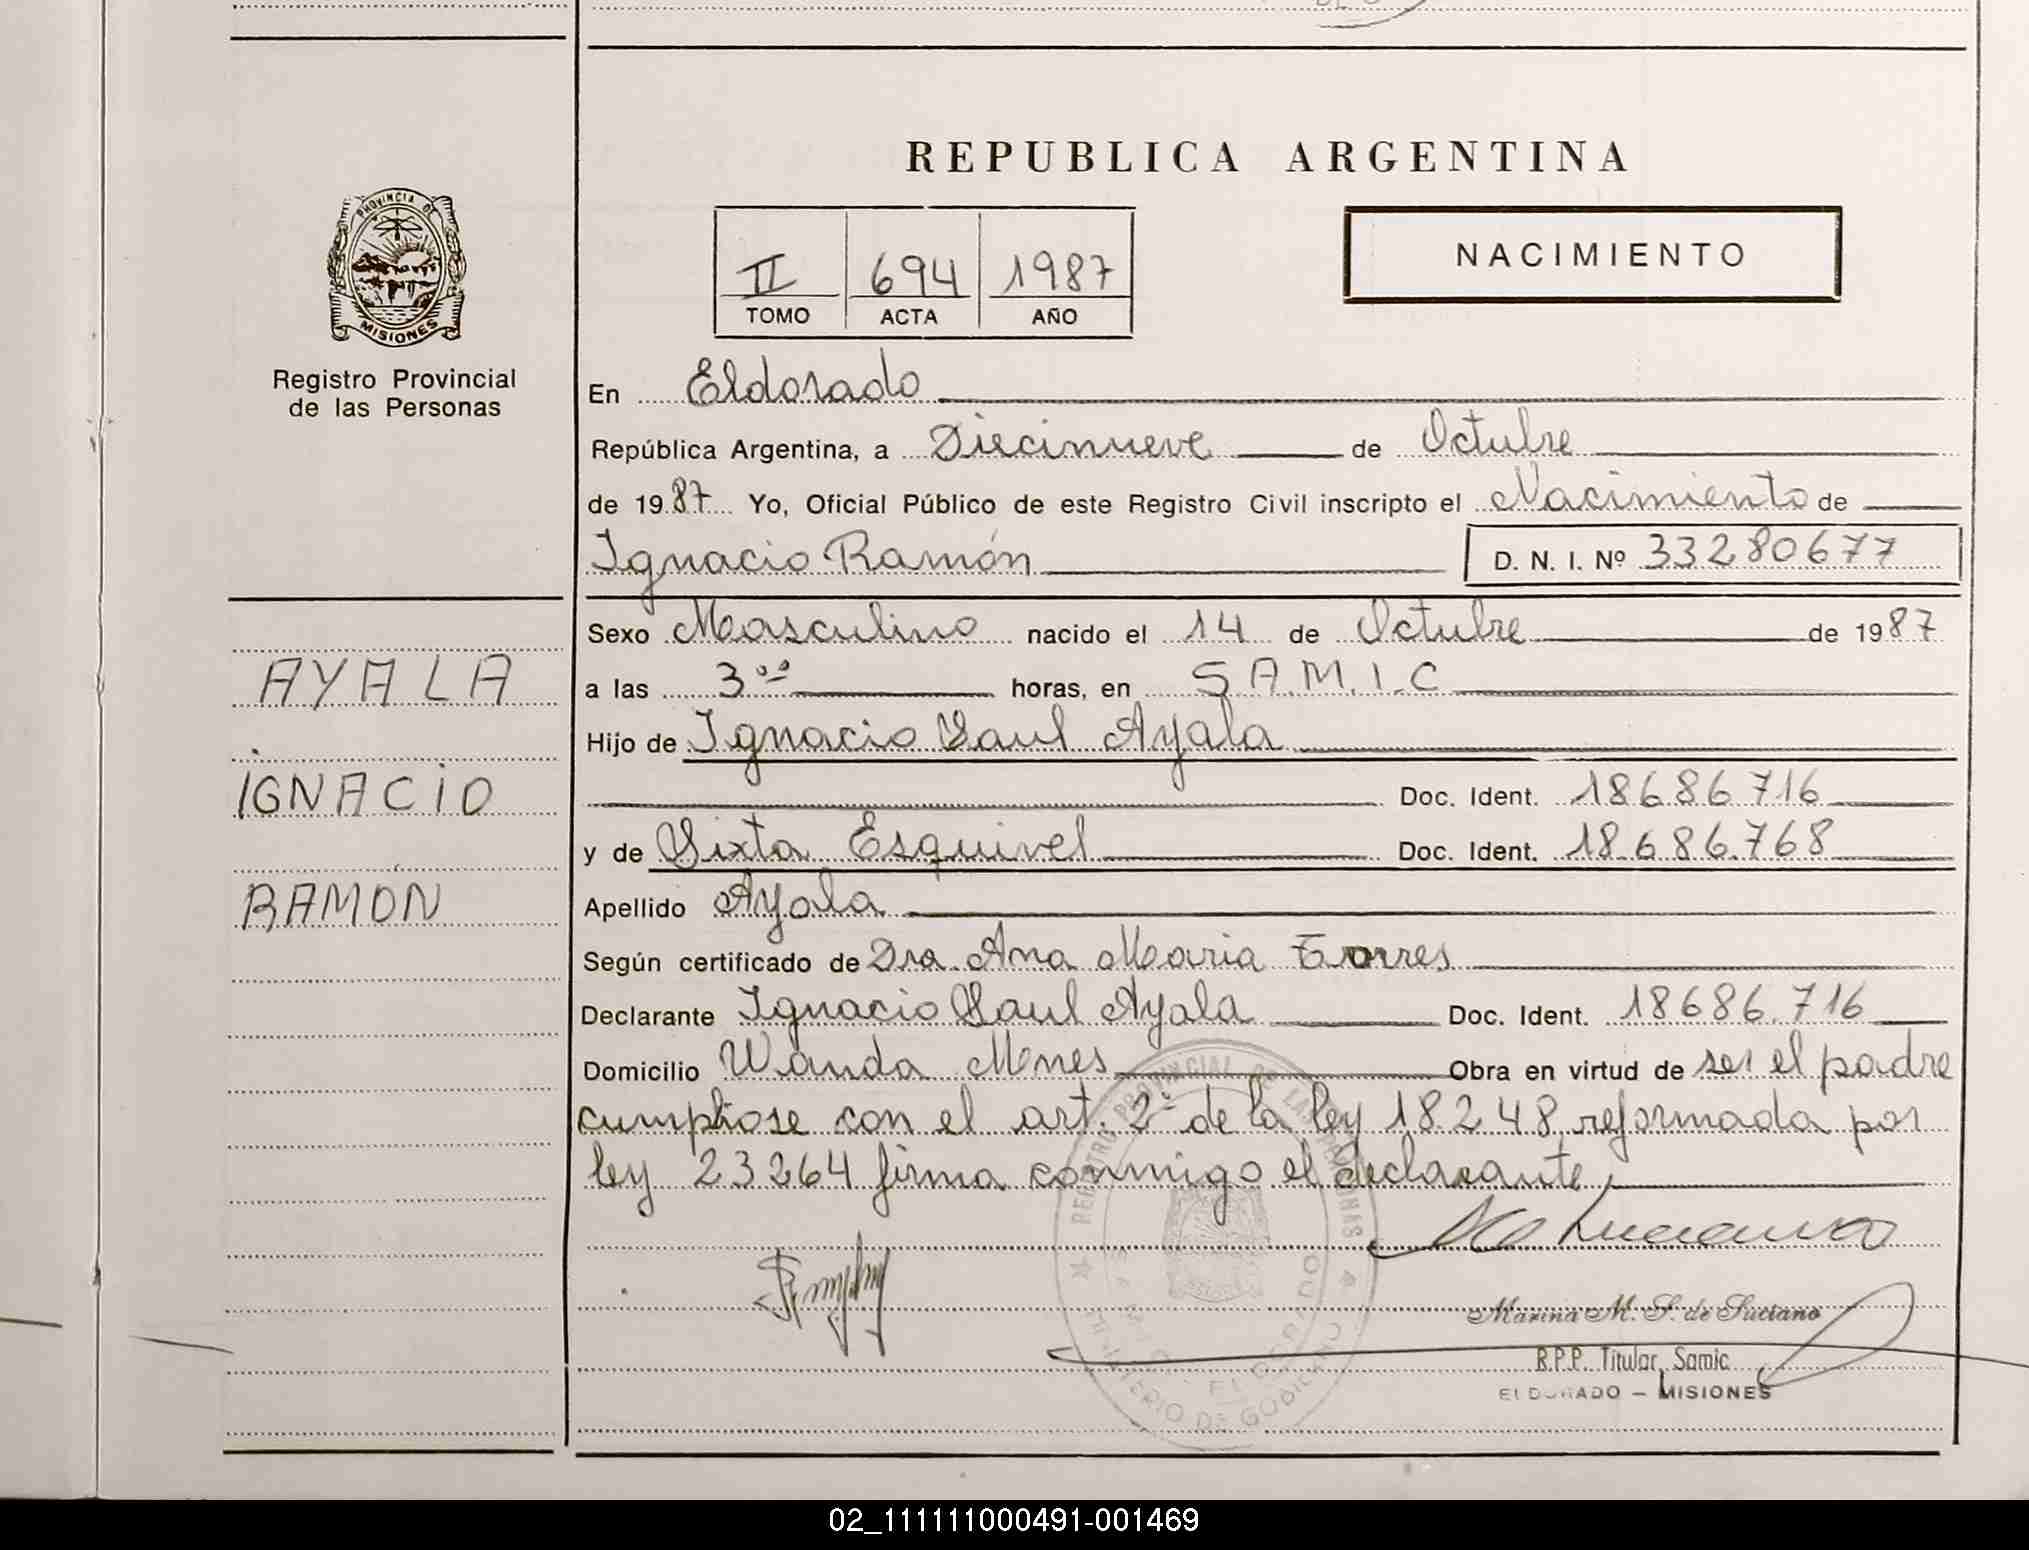 REPUBLICA ARGENTINA
PROVINCIA DE
MISIONES
Registro Provincial
de las Personas
II 694 1987
TOMO ACTA AÑO
NACIMIENTO
En Eldorado
República Argentina, a Diecinueve de Octubre
de 1987 Yo, Oficial Público de este Registro Civil inscripto el Nacimiento de
Ignacio Ramón D. N. I. Nº 33280677
Sexo Masculino nacido el 14 de Octubre de 1987
a las 3 horas, en S.A.M.I.C
Hijo de Ignacio Saul Ayala
Doc. Ident. 18686716
y de Sixta Esquivel Doc. Ident. 18.686.768
Apellido Ayala
Según certificado de Dra Ana Maria Torres
Declarante Ignacio Saul Ayala Doc. Ident. 18686.716
Domicilio Wanda Mnes Obra en virtud de ser el padre
cumpliose con el art. 2º de la ley 18248 reformada por
ley 23264 firma conmigo el declarante
AYALA
IGNACIO
RAMON
REGISTRO PROVINCIAL DE LAS PERSONAS
MINISTERIO DE GOBIERNO
ELDORADO
Marina M. S. de Luciano
R.P.P. Titular Samic
ELDORADO - MISIONES
02_111111000491-001469